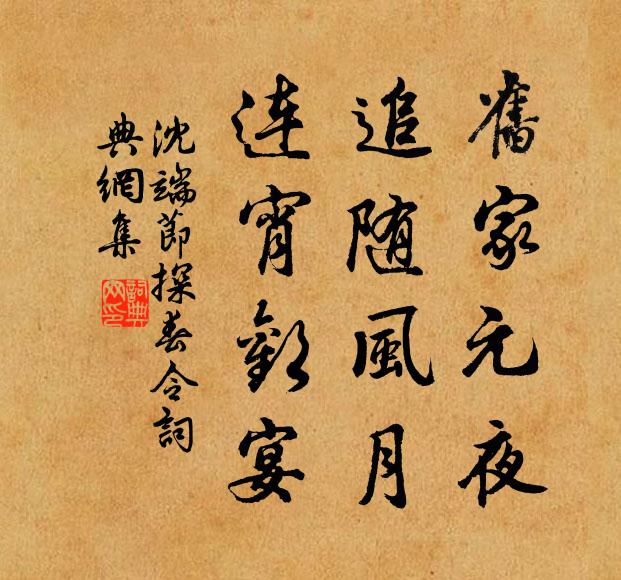 舊家元夜
追随風月
連宵歡宴
沈端節探春令詞
典網集
詞典網印